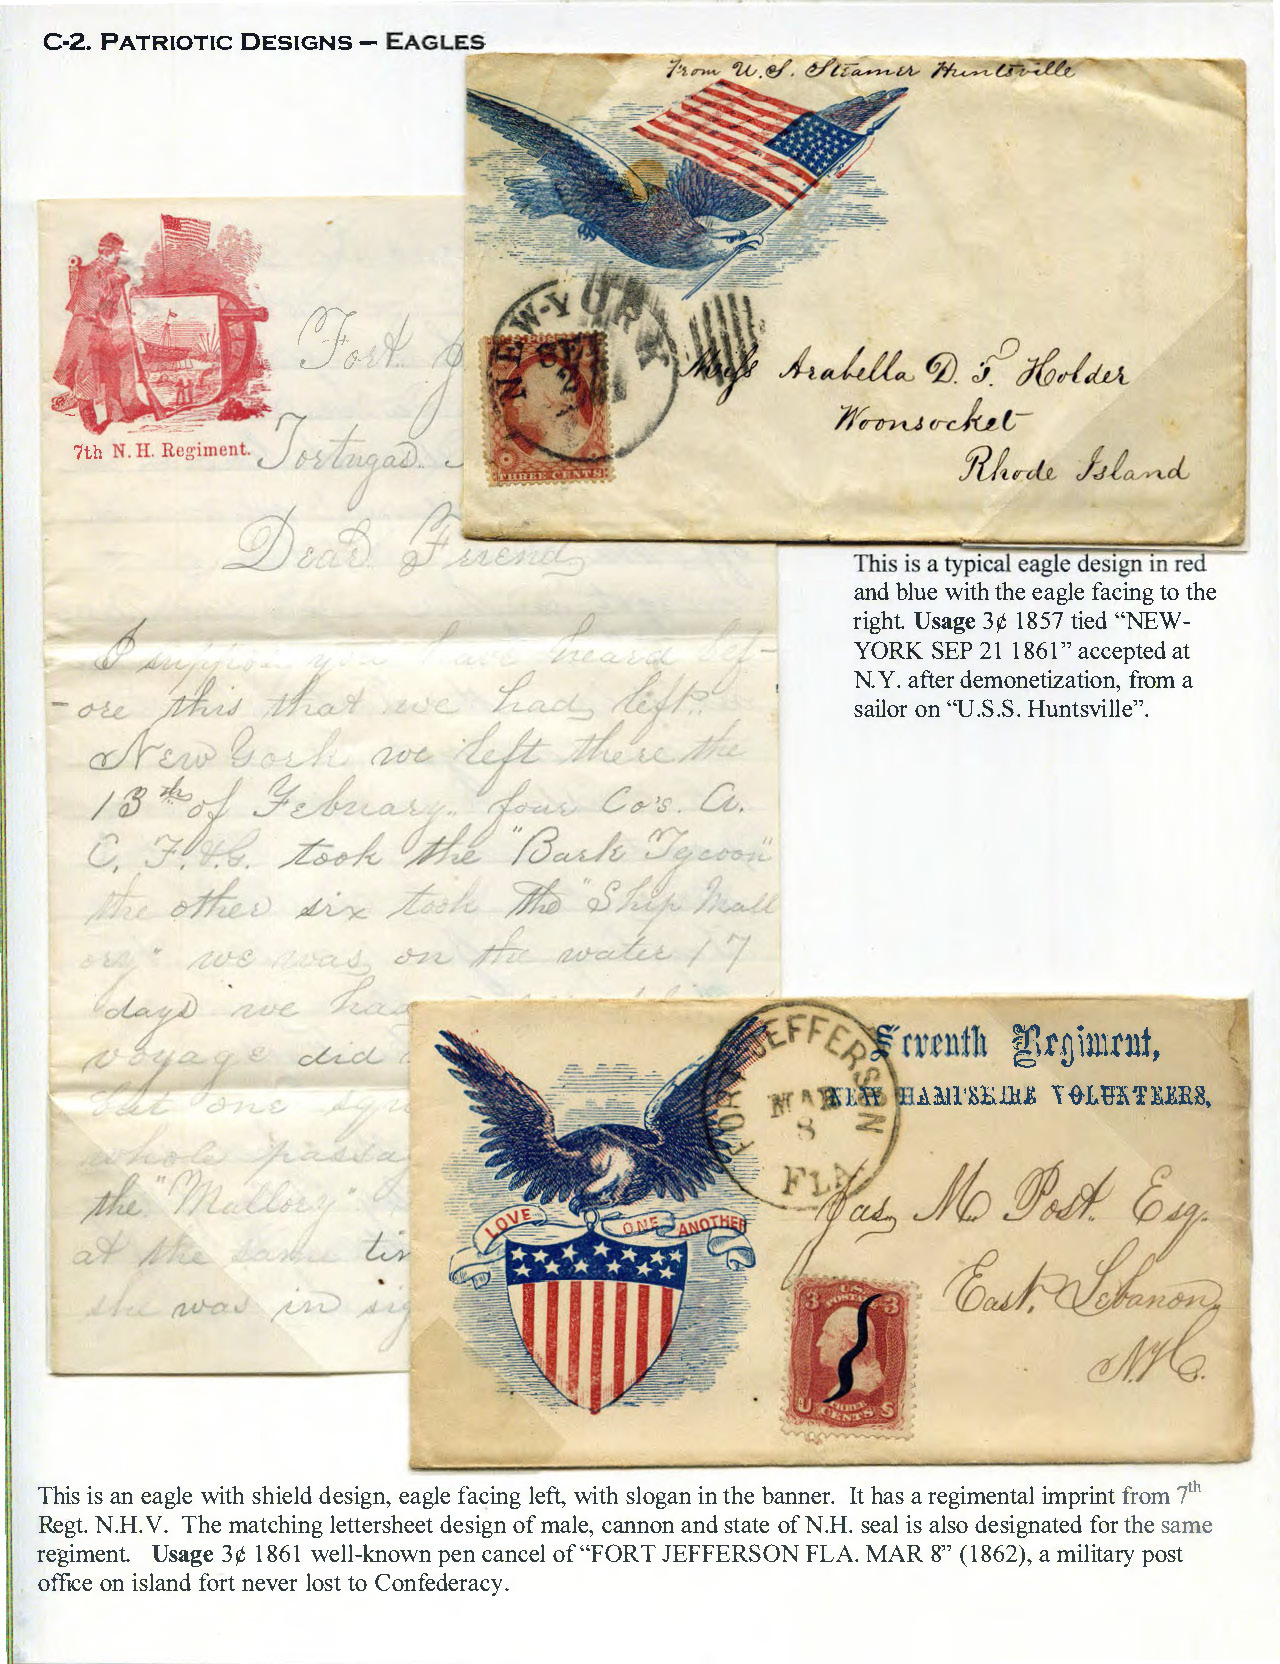 C-2. PATRIOTIC DESIGNS – EAGLES
From U.S. Steamer Huntsville
NEW-YORK
SEP
21
1861
THREE CENTS
Miss Arabella D. F. Holder
Woonsocket
Rhode Island
7th N. H. Regiment.
Fort
Tortugas
Dear Friend
I suppose you have heard bef-
ore this that we had left
New York we left there the
13th of Febuary. four Co's. A.
C. F. & G. took the "Bark Tycoon"
the other six took the "Ship Mall
ory" we was on the water 17
days we had
voyage did
but one
whole passag
the "Mallory"
at the same tim
she was in sig
This is a typical eagle design in red
and blue with the eagle facing to the
right. Usage 3¢ 1857 tied “NEW-
YORK SEP 21 1861” accepted at
N.Y. after demonetization, from a
sailor on “U.S.S. Huntsville”.
FORT JEFFERSON
MAR
8
FLA
Seventh Regiment,
NEW HAMPSHIRE VOLUNTEERS.
LOVE ONE ANOTHER
Jas. M. Post. Esq.
East. Lebanon,
N.H.
U.S. POSTAGE
3 3
THREE
U CENTS S
This is an eagle with shield design, eagle facing left, with slogan in the banner. It has a regimental imprint from 7th
Regt. N.H.V. The matching lettersheet design of male, cannon and state of N.H. seal is also designated for the same
regiment. Usage 3¢ 1861 well-known pen cancel of “FORT JEFFERSON FLA. MAR 8” (1862), a military post
office on island fort never lost to Confederacy.